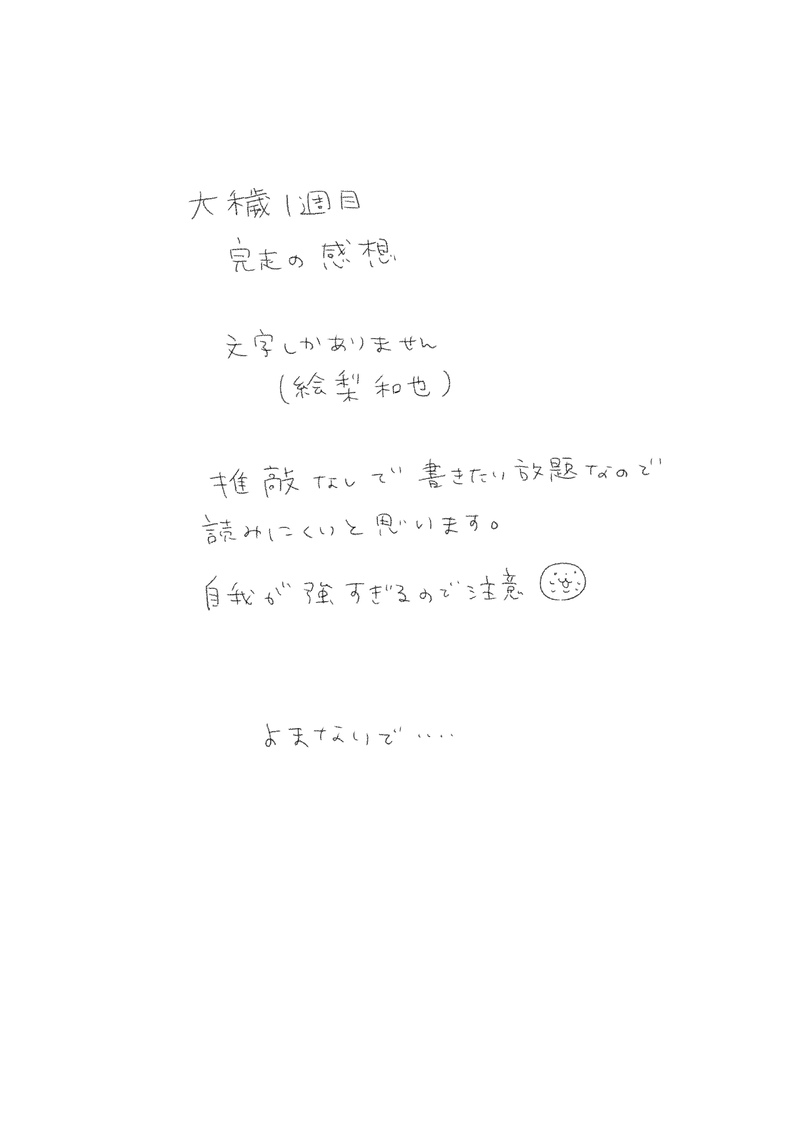 大穢1週目
完走の感想
文字しかありません
(絵梨和也)
推敲なしで書きたい放題なので
読みにくいと思います。
自我が強すぎるので注意
よまないで‥‥